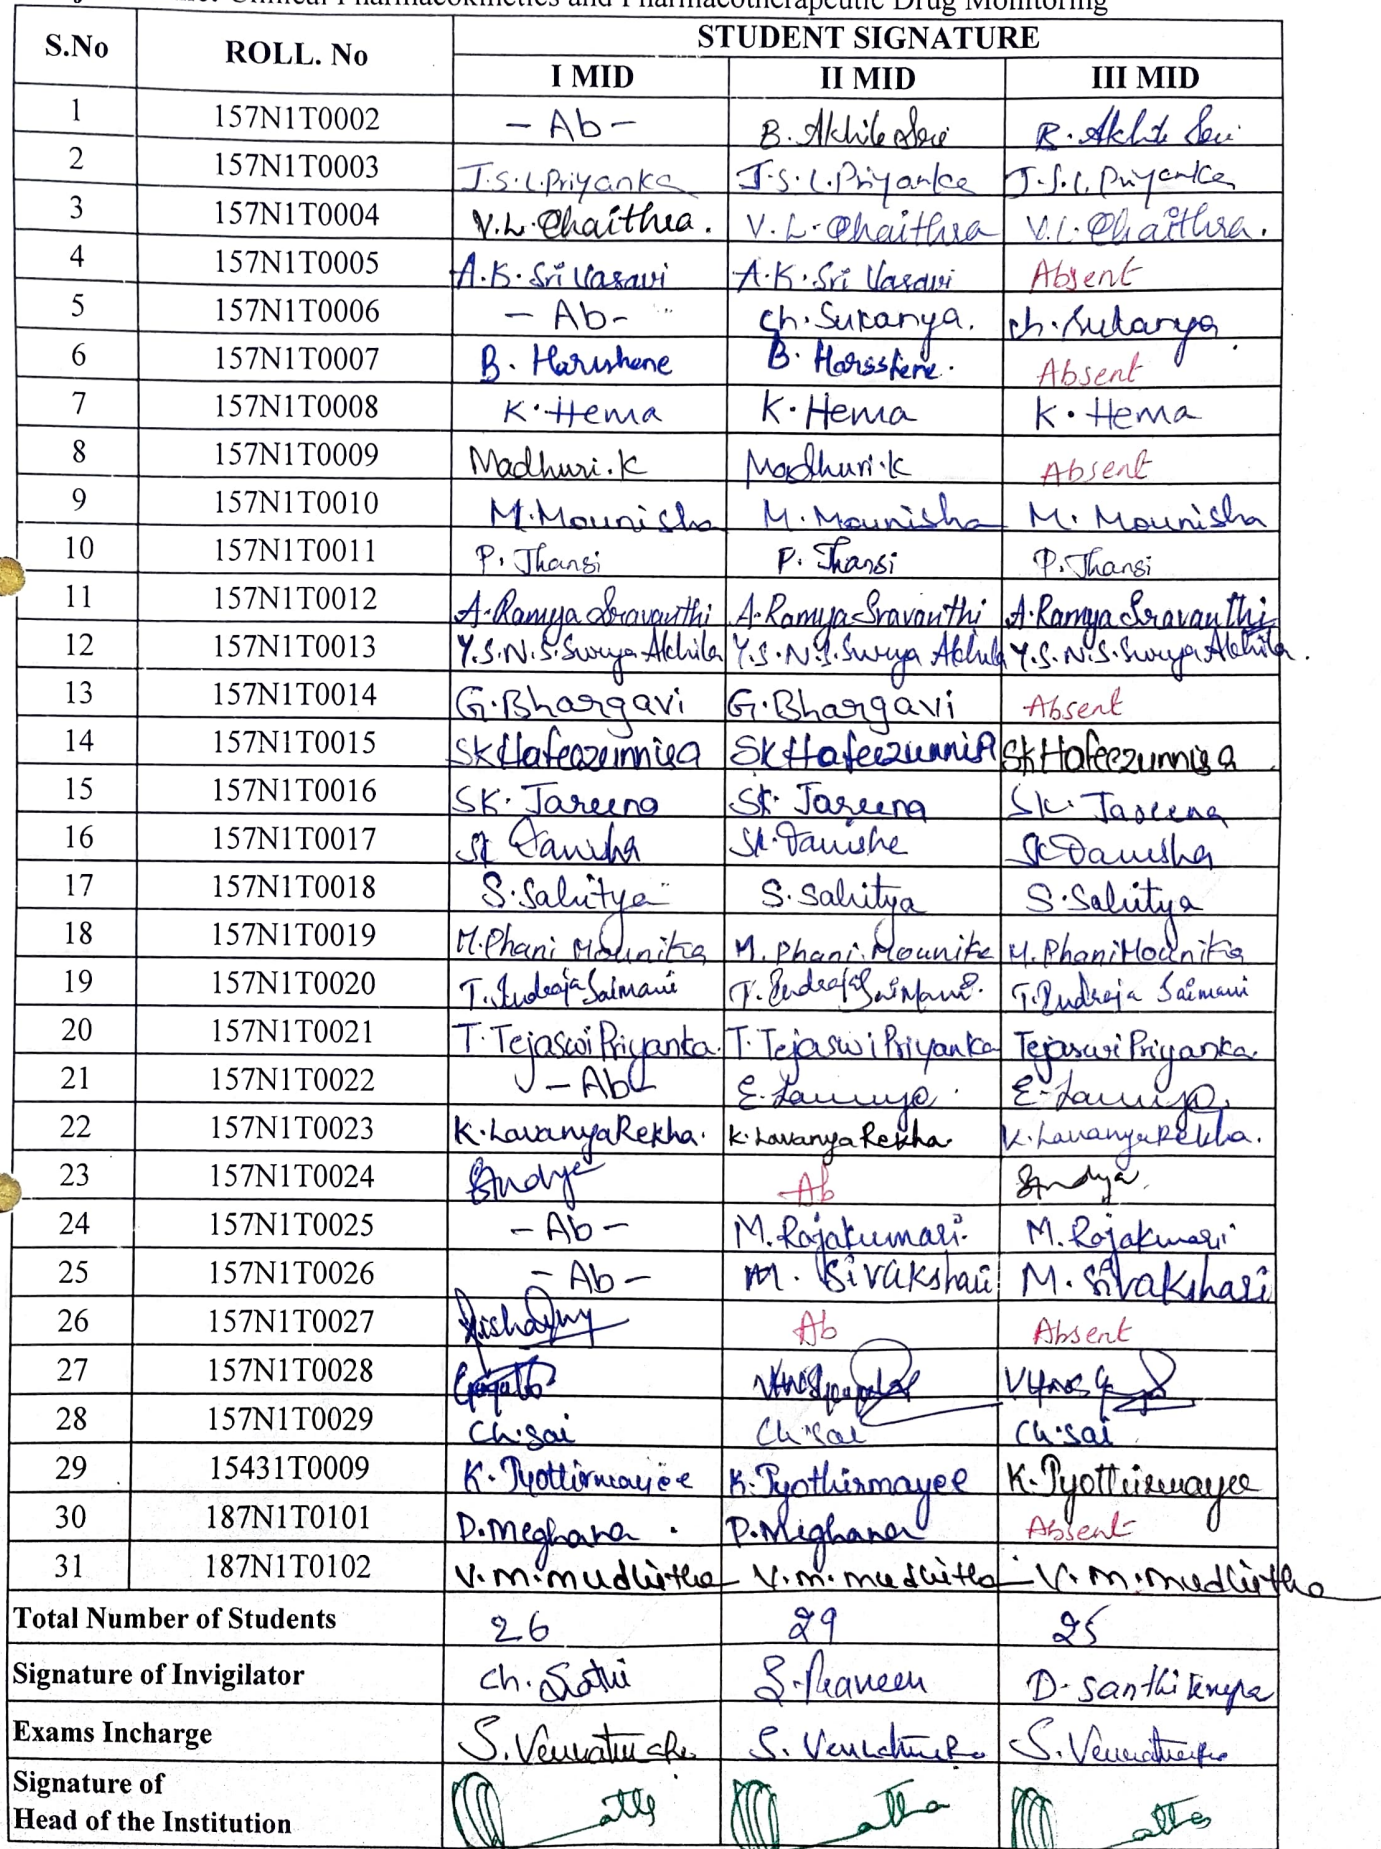 Clinical Pharmacokinetics and Pharmacotherapeutic Drug Monitoring
S.No ROLL. No STUDENT SIGNATURE
I MID II MID III MID
1 157N1T0002 - Ab - B. Akhila Sri B. Akhila Sri
2 157N1T0003 J.S.L.Priyanka J.S.L.Priyanka J.S.L.Priyanka
3 157N1T0004 V.L.Chaithra. V.L.Chaithra V.L.Chaithra.
4 157N1T0005 A.K.Sri Vasavi A.K.Sri Vasavi Absent
5 157N1T0006 - Ab - Ch.Sukanya. Ch.Sukanya.
6 157N1T0007 B. B. Absent
7 157N1T0008 K.Hema K.Hema K.Hema
8 157N1T0009 Madhuri.K Madhuri.K Absent
9 157N1T0010 M.Mounisha M.Mounisha M.Mounisha
10 157N1T0011 P. Jhansi P. Jhansi P. Jhansi
11 157N1T0012 A.Ramya Sravanthi A.Ramya Sravanthi A.Ramya Sravanthi
12 157N1T0013 Y.S.N.S.Surya Akhila Y.S.N.S.Surya Akhila Y.S.N.S.Surya Akhila.
13 157N1T0014 G.Bhargavi G.Bhargavi Absent
14 157N1T0015 SK Hafeezunnisa SK Hafeezunnisa SK Hafeezunnisa
15 157N1T0016 SK. Jareena SK. Jareena SK. Jareena
16 157N1T0017 SK Danisha SK. Danisha SK Danisha
17 157N1T0018 S.Sahitya S.Sahitya S.Sahitya
18 157N1T0019 M.Phani Mounika M.Phani Mounika M.Phani Mounika
19 157N1T0020 T.Indraja Saimani T.Indraja Saimani. T.Indraja Saimani
20 157N1T0021 T.Tejaswi Priyanka. T.Tejaswi Priyanka Tejaswi Priyanka.
21 157N1T0022 - Ab - E. E.
22 157N1T0023 K.Lavanya Rekha. K.Lavanya Rekha. K.Lavanya Rekha.
23 157N1T0024 Ab
24 157N1T0025 - Ab - M.Rajakumari. M.Rajakumari
25 157N1T0026 - Ab - M. Sivakshari M. Sivakshari
26 157N1T0027 Ab Absent
27 157N1T0028
28 157N1T0029 Ch.Sai Ch.Sai Ch.Sai
29 15431T0009 K.Jyothirmayee K.Jyothirmayee K.Jyothirmayee
30 187N1T0101 D.Meghana. D.Meghana Absent
31 187N1T0102 V.M.Mudhitha V.M.Mudhitha V.M.Mudhitha
Total Number of Students 26 29 25
Signature of Invigilator Ch. S.Praveen D.
Exams Incharge S. S. S.
Signature of
Head of the Institution